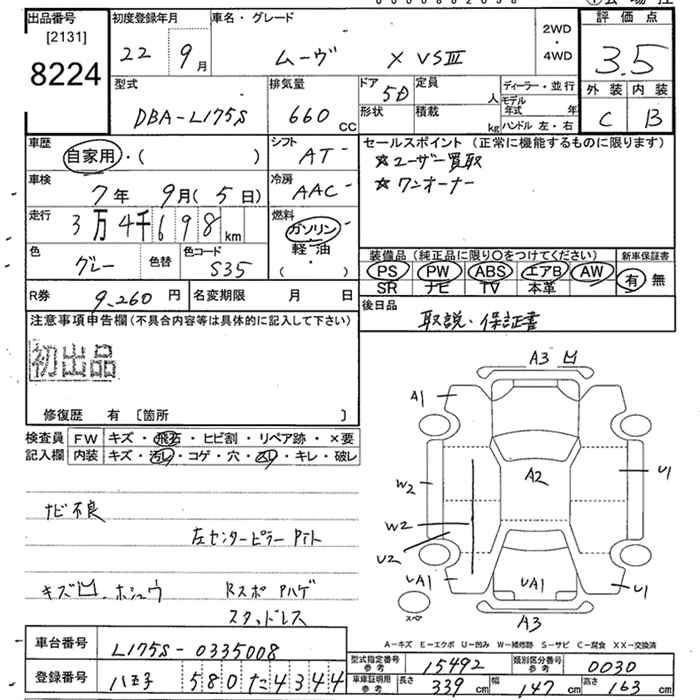 出品番号 初度登録年月 車名・グレード 評価点
[2131] 22年 9月 ムーヴ X VSⅢ 2WD・4WD 3.5
8224 型式 排気量 ドア 定員 人 ディーラー・並行 外装 内装
DBA-L175S 660cc 5D 形状 積載 kg モデル年式 年 ハンドル 左・右 C B
車歴 自家用・( ) シフト AT セールスポイント (正常に機能するものに限ります)
☆ユーザー買取
車検 7年 9月(5日) 冷房 AAC ☆ワンオーナー
走行 3万4千698km 燃料 ガソリン 軽・油 ( )
色 グレー 色替 色コード S35 装備品 (純正品に限り○をつけてください) 新車保証書
PS PW ABS エアB AW 有 無
SR ナビ TV 本革
R券 9,260円 名変期限 月 日 後日品
取説・保証書
注意事項申告欄(不具合内容等は具体的に記入して下さい)
初出品
修復歴 有 〔箇所 〕
検査員 FW キズ・飛石・ヒビ割・リペア跡・×要
記入欄 内装 キズ・汚レ・コゲ・穴・スレ・キレ・破レ
ナビ不良
左センターピラー Pイト
キズ凹、ホシュウ Rスポ Aハゲ
スタッドレス
A3 凹
A1
A2
U1
W2
W2
U2
UA1
UA1
U1
スペア
A3
A-キズ E-エクボ U-凹み W-補修跡 S-サビ C-腐食 XX-交換済
車台番号 L175S-0335008
型式指定番号 参考 15492 類別区分番号 参考 0030
登録番号 八王子 580 た 4344
車車証明用 参考 長さ 339cm 幅 147cm 高さ 163cm